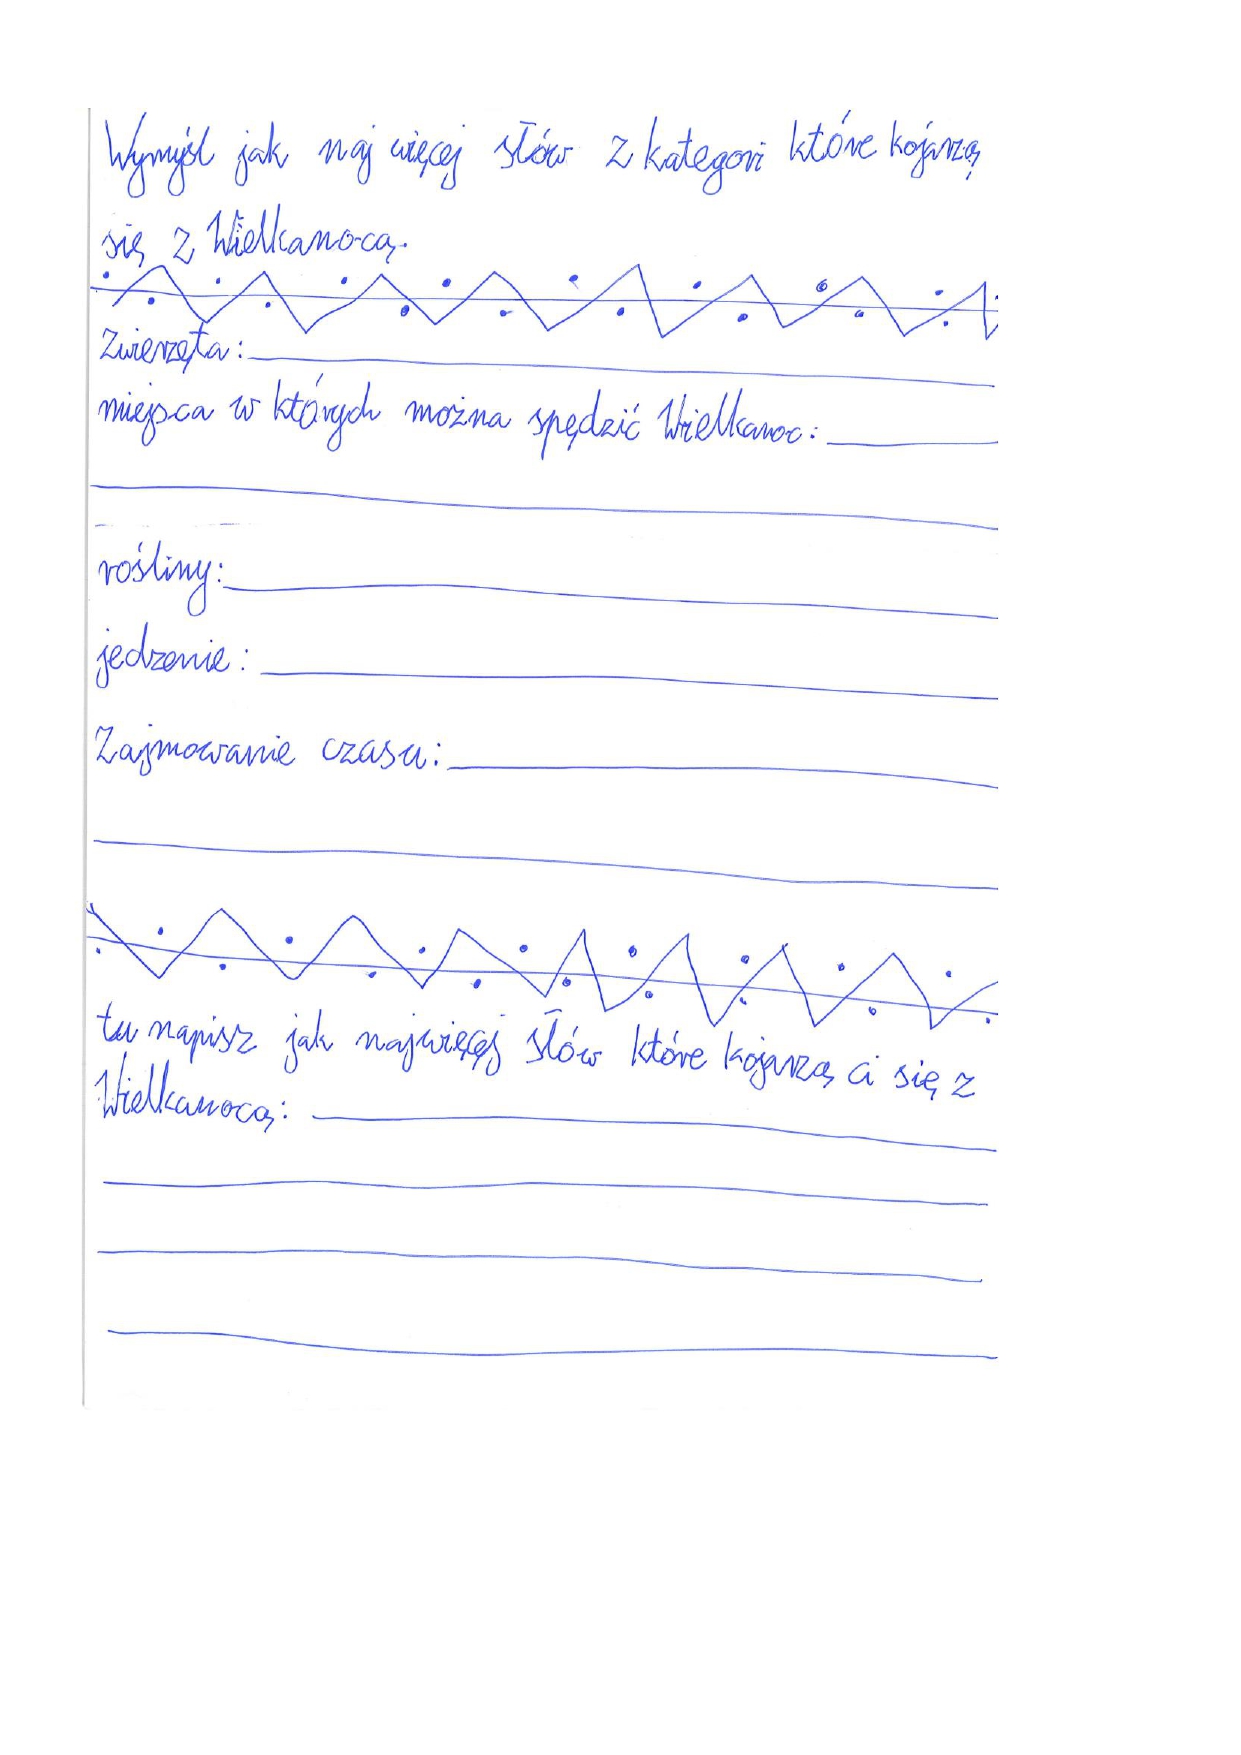 Wymyśl jak naj więcej słów z kategori które kojarzą
się z Wielkanocą.
Zwierzęta:
miejsca w których można spędzić Wielkanoc:
rośliny:
jedzenie:
Zajmowanie czasu:
tu napisz jak najwięcęj słów które kojarzą ci się z
Wielkanocą: